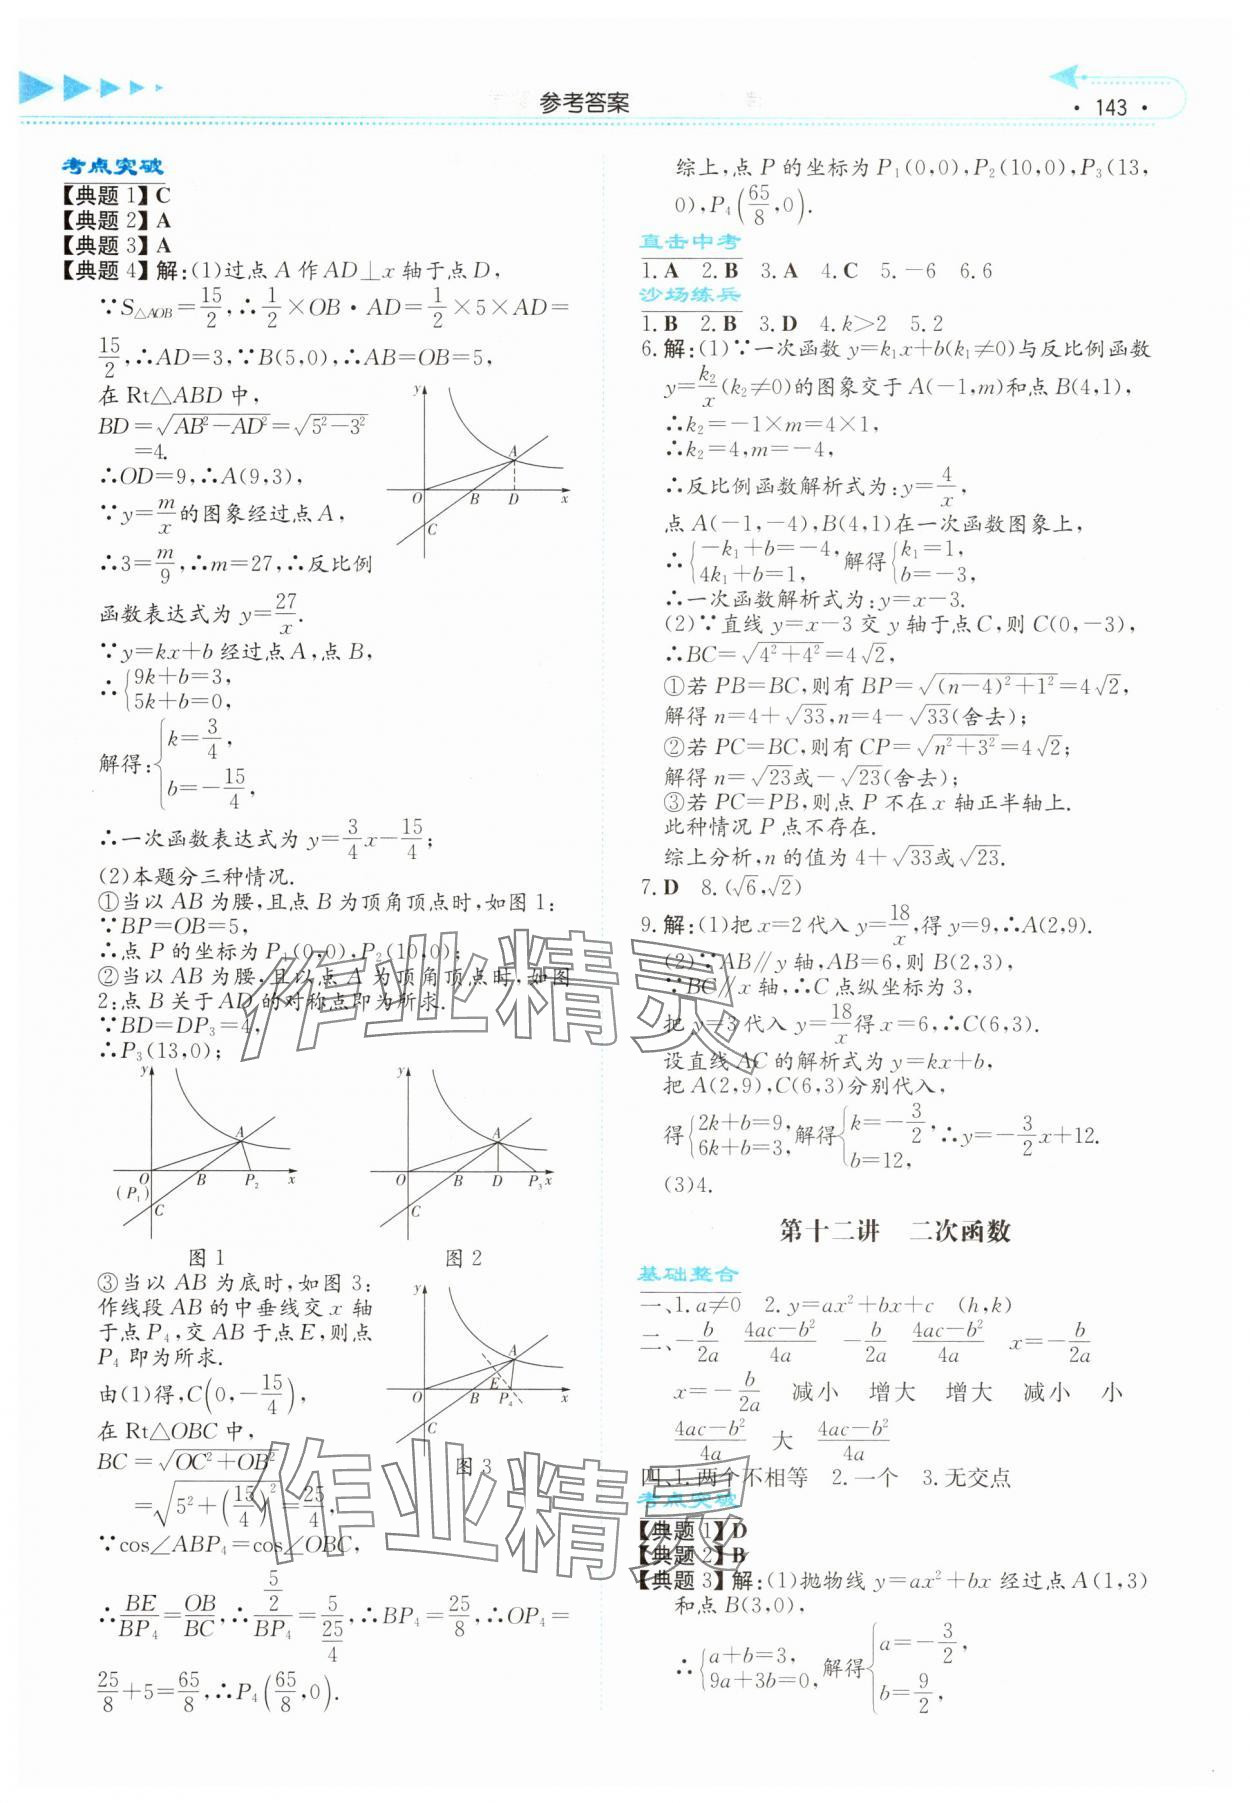 参考答案
· 143 ·
考点突破
【典题 1】C
【典题 2】A
【典题 3】A
【典题 4】解:(1)过点 A 作 AD⊥x 轴于点 D,
∵S△AOB=15/2,∴1/2×OB·AD=1/2×5×AD=
15/2,∴AD=3,∵B(5,0),∴AB=OB=5,
在 Rt△ABD 中,
BD=√(AB²-AD²)=√(5²-3²)
=4.
∴OD=9,∴A(9,3),
∵y=m/x的图象经过点 A,
∴3=m/9,∴m=27,∴反比例
函数表达式为 y=27/x.
∵y=kx+b 经过点 A,点 B,
∴{9k+b=3,
5k+b=0,
解得:{k=3/4,
b=-15/4,
∴一次函数表达式为 y=3/4x-15/4;
(2)本题分三种情况.
①当以 AB 为腰,且点 B 为顶角顶点时,如图 1:
∵BP=OB=5,
∴点 P 的坐标为 P₁(0,0),P₂(10,0);
②当以 AB 为腰,且以点 A 为顶角顶点时,如图
2:点 B 关于 AD 的对称点即为所求.
∵BD=DP₃=4,
∴P₃(13,0);
y A O B D x C
y A O (P₁) B P₂ x C
图 1
y A O B D P₃ x C
图 2
③当以 AB 为底时,如图 3:
作线段 AB 的中垂线交 x 轴
于点 P₄,交 AB 于点 E,则点
P₄ 即为所求.
由(1)得,C(0,-15/4),
在 Rt△OBC 中,
BC=√(OC²+OB²)
=√(5²+(15/4)²)=25/4,
y A E O B P₄ x C
图 3
∵cos∠ABP₄=cos∠OBC,
∴BE/BP₄=OB/BC,∴(5/2)/BP₄=5/(25/4),∴BP₄=25/8,∴OP₄=
25/8+5=65/8,∴P₄(65/8,0).
综上,点 P 的坐标为 P₁(0,0),P₂(10,0),P₃(13,
0),P₄(65/8,0).
直击中考
1.A 2.B 3.A 4.C 5.-6 6.6
沙场练兵
1.B 2.B 3.D 4.k>2 5.2
6.解:(1)∵一次函数 y=k₁x+b(k₁≠0)与反比例函数
y=k₂/x(k₂≠0)的图象交于 A(-1,m)和点 B(4,1),
∴k₂=-1×m=4×1,
∴k₂=4,m=-4,
∴反比例函数解析式为:y=4/x,
点 A(-1,-4),B(4,1)在一次函数图象上,
∴{-k₁+b=-4,
4k₁+b=1, 解得{k₁=1,
b=-3,
∴一次函数解析式为:y=x-3.
(2)∵直线 y=x-3 交 y 轴于点 C,则 C(0,-3),
∴BC=√(4²+4²)=4√2,
①若 PB=BC,则有 BP=√((n-4)²+1²)=4√2,
解得 n=4+√33,n=4-√33(舍去);
②若 PC=BC,则有 CP=√(n²+3²)=4√2;
解得 n=√23或-√23(舍去);
③若 PC=PB,则点 P 不在 x 轴正半轴上.
此种情况 P 点不存在.
综上分析,n 的值为 4+√33或√23.
7.D 8.(√6,√2)
9.解:(1)把 x=2 代入 y=18/x,得 y=9,∴A(2,9).
(2)∵AB∥y 轴,AB=6,则 B(2,3),
∵BC∥x 轴,∴C 点纵坐标为 3,
把 y=3 代入 y=18/x得 x=6,∴C(6,3).
设直线 AC 的解析式为 y=kx+b,
把 A(2,9),C(6,3)分别代入,
得{2k+b=9,
6k+b=3, 解得{k=-3/2,
b=12, ∴y=-3/2x+12.
(3)4.
第十二讲 二次函数
基础整合
一、1.a≠0 2.y=ax²+bx+c (h,k)
二、-b/2a (4ac-b²)/4a -b/2a (4ac-b²)/4a x=-b/2a
x=-b/2a 减小 增大 增大 减小 小
(4ac-b²)/4a 大 (4ac-b²)/4a
四、1.两个不相等 2.一个 3.无交点
考点突破
【典题 1】D
【典题 2】B
【典题 3】解:(1)抛物线 y=ax²+bx 经过点 A(1,3)
和点 B(3,0),
∴{a+b=3,
9a+3b=0, 解得{a=-3/2,
b=9/2,
作业精灵
作业精灵